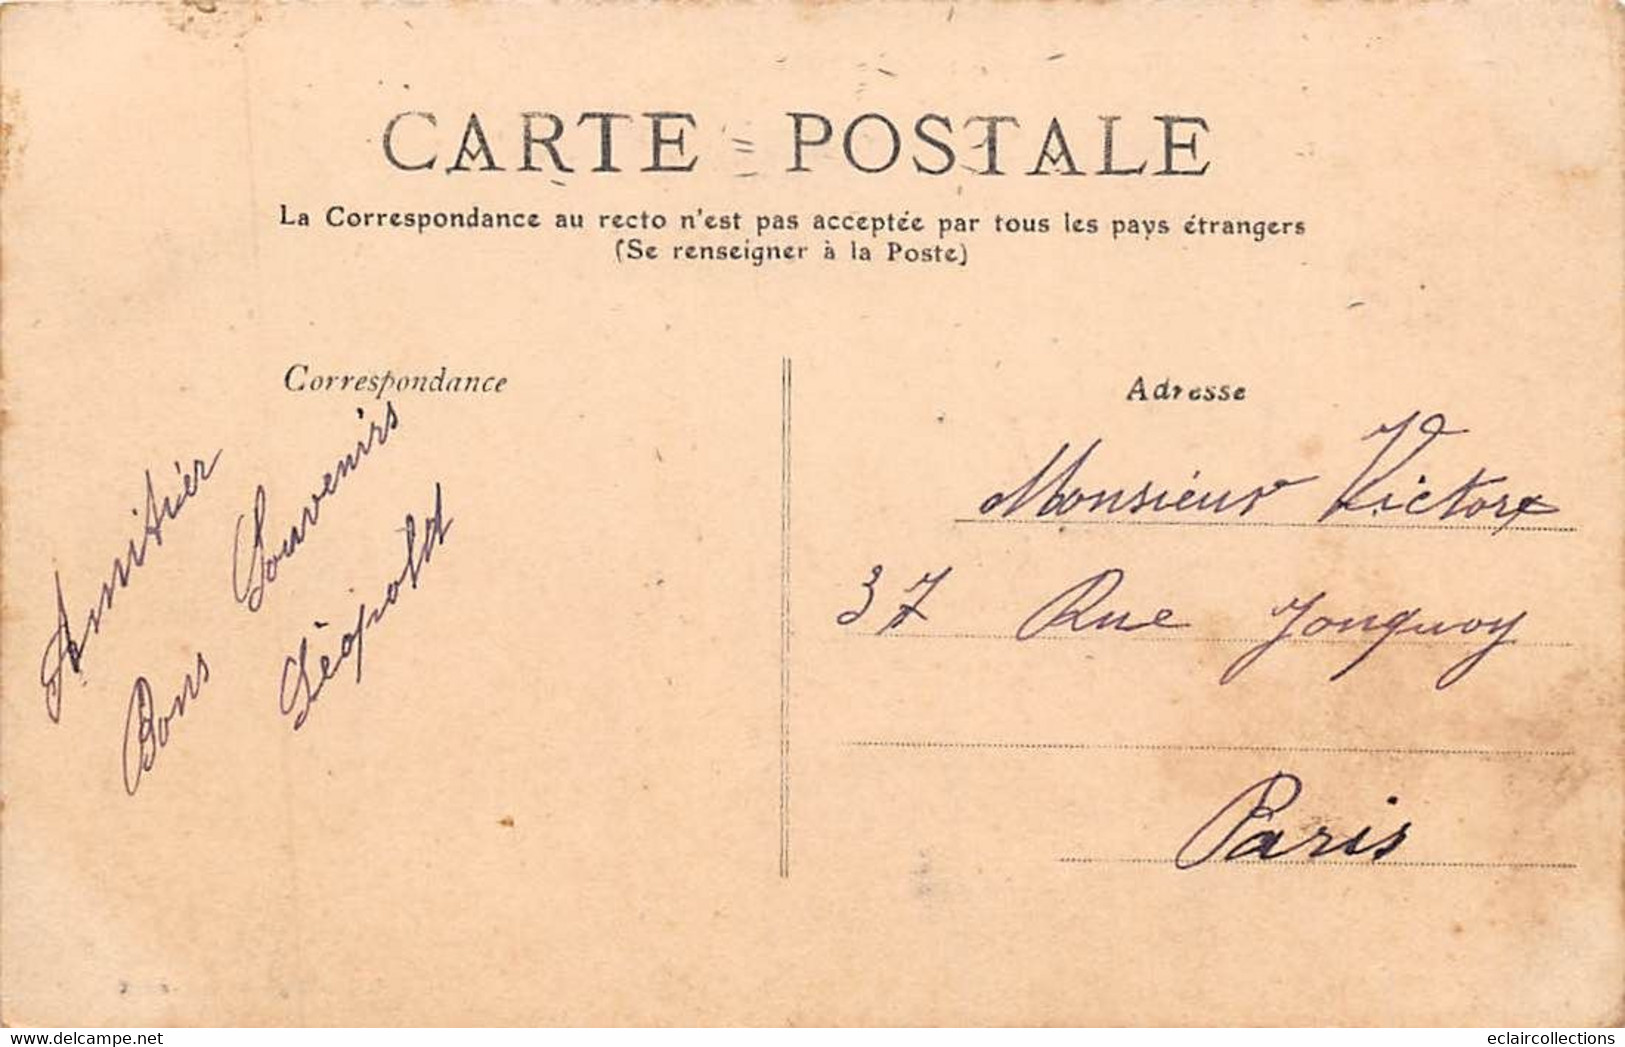 CARTE POSTALE
La Correspondance au recto n'est pas acceptée par tous les pays étrangers
(Se renseigner à la Poste)
Correspondance
Amitiér
Bons Souvenirs
Léopold
Adresse
Monsieur Victor
37 Rue Jonquoy
Paris
delcampe.net
eclaircollections